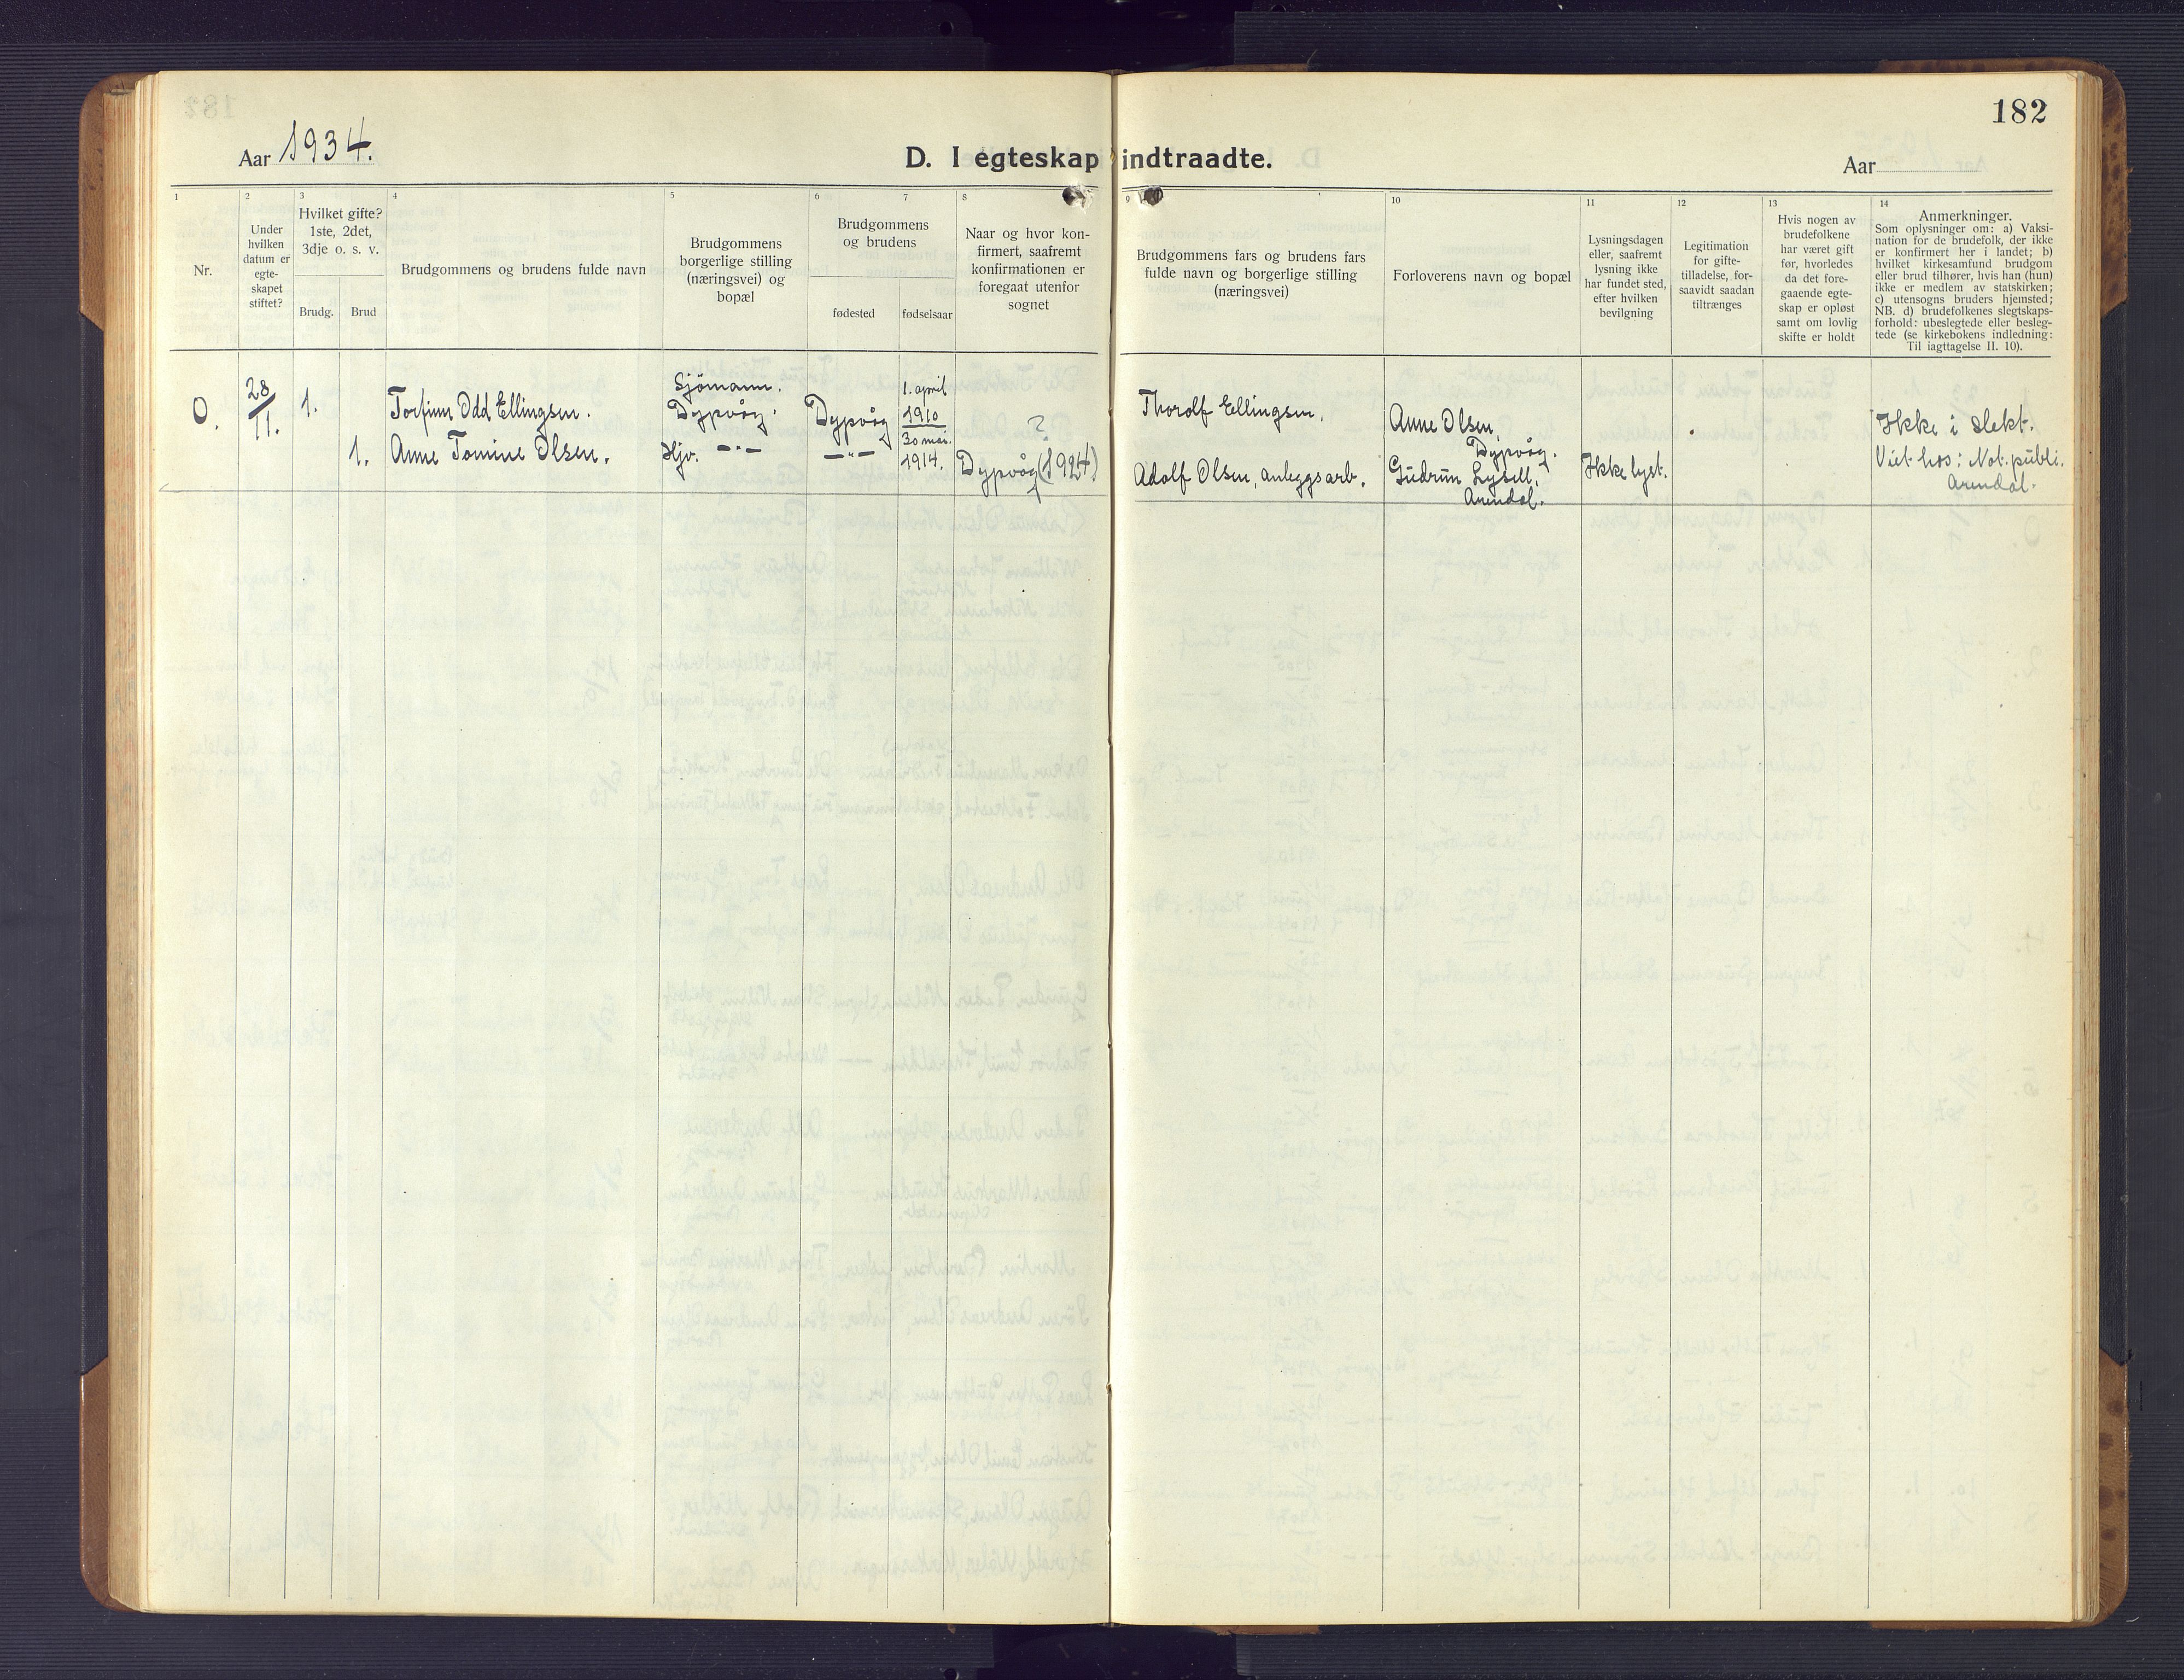 182
Aar 1934.
D. I egteskap indtraadte.
Aar
1
2
3
4
5
6
7
8
9
10
11
12
13
14
Nr.
Under
hvilken
datum er
egte-
skapet
stiftet?
Hvilket gifte?
1ste, 2det,
3dje o. s. v.
Brudg.
Brud
Brudgommens og brudens fulde navn
Brudgommens
borgerlige stilling
(næringsvei) og
bopæl
Brudgommens
og brudens
fødested
fødselsaar
Naar og hvor kon-
firmert, saafremt
konfirmationen er
foregaat utenfor
sognet
Brudgommens fars og brudens fars
fulde navn og borgerlige stilling
(næringsvei)
Forloverens navn og bopæl
Lysningsdagen
eller, saafremt
lysning ikke
har fundet sted,
efter hvilken
bevilgning
Legitimation
for gifte-
tilladelse, for-
saavidt saadan
tiltrænges
Hvis nogen av
brudefolkene
har været gift
før, hvorledes
da det fore-
gaaende egte-
skap er opløst
samt om lovlig
skifte er holdt
Anmerkninger.
Som oplysninger om: a) Vaksi-
nation for de brudefolk, der ikke
er konfirmert her i landet; b)
hvilket kirkesamfund brudgom
eller brud tilhører, hvis han (hun)
ikke er medlem av statskirken;
c) utensogns bruders hjemsted;
NB. d) brudefolkenes slegtskaps-
forhold: ubeslegtede eller besleg-
tede (se kirkebokens indledning:
Til iagttagelse II. 10).
0.
28/11.
1.
Torfinn Odd Ellingsen.
Sjømann.
Dypvåg.
Dypvåg
1. april
1910
?
Thorolf Ellingsen.
Anne Olsen,
Dypvåg.
Ikke i slekt.
1.
Anne Tomine Olsen.
Hjv. -"-
-"-
30 mai.
1914.
Dypvåg (1924)
Adolf Olsen, anleggsarb.
Gudrun Lysell,
Arendal.
Ikke lyst.
Viet hos: Not. publ.
Arendal.